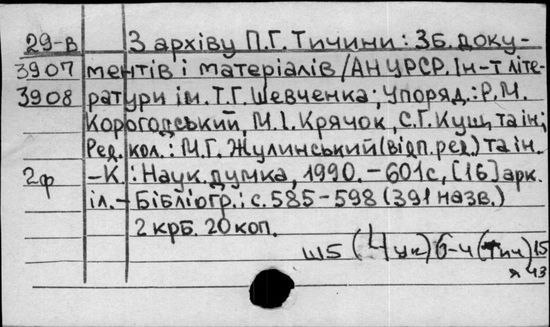 29-В З архіву П.Г. Тичини: Зб. доку-
3907 ментів і матеріалів / АН УРСР. Ін-т літе-
3908 ратури ім. Т.Г. Шевченка; Упоряд.: Р.М.
Корогодський, М.І. Крячок, С.Г. Кущ та ін;
Ред. кол.: М.Г. Жулинський (відп. ред.) та ін.
2ф – К.: Наук. думка, 1990. – 601 с, [16] арк.
іл. – Бібліогр.: с. 585–598 (391 назв.)
2 крб. 20 коп.
Ш5 (4Ук) 6-4 (Тич) 15
я 43